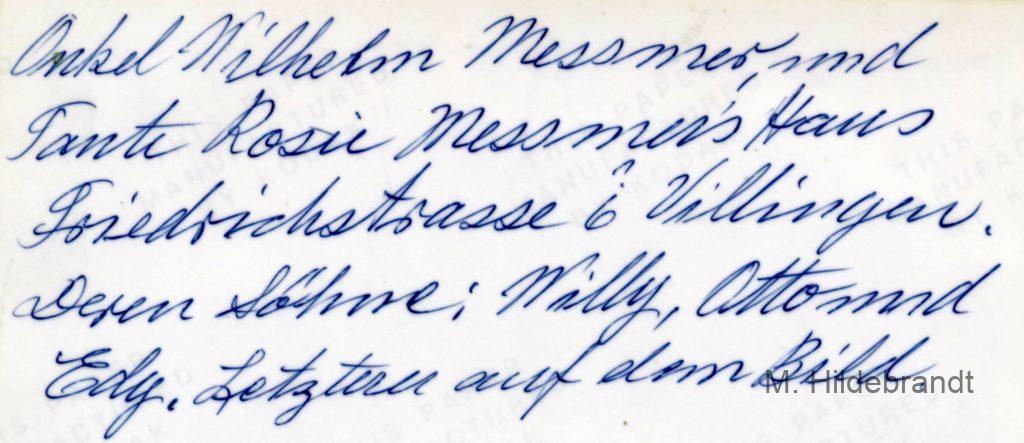 Onkel Wilhelm Messmer, und
Tante Rosie Messmer's Haus
Friedrichstrasse i Villingen.
Deren Söhne: Willy, Otto und
Edy. Letzteren auf dem Bild.
M. Hildebrandt
THIS PAPER
MANUFACTURED
BY KODAK